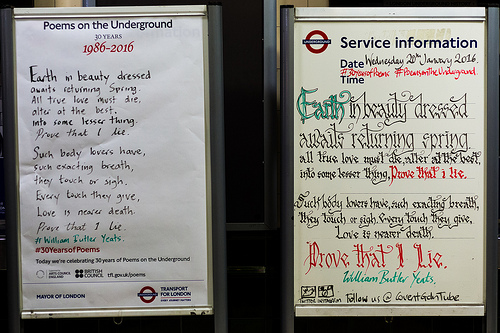 Poems on the Underground
30 YEARS
1986-2016
Earth in beauty dressed
awaits returning Spring.
All true love must die,
alter at the best
into some lesser thing.
Prove that I lie.
Such body lovers have,
such exacting breath,
they touch or sigh.
Every touch they give,
Love is nearer death.
Prove that I lie.
#William Butler Yeats.
#30YearsofPoems
Today we're celebrating 30 years of Poems on the Underground
ARTS COUNCIL ENGLAND
BRITISH COUNCIL
tfl.gov.uk/poems
MAYOR OF LONDON
TRANSPORT FOR LONDON
EVERY JOURNEY MATTERS
UNDERGROUND
Service information
Date Wednesday 20th January 2016.
#30YearsofPoems #PoemsontheUnderground
Time
Earth in beauty dressed
awaits returning spring.
all true love must die, alter at the best,
into some lesser thing, Prove that i lie.
Such body lovers have, such exacting breath,
they touch or sigh. Every touch they give,
Love is nearer death.
Prove that I Lie.
William Butler Yeats.
TWITTER INSTAGRAM follow us @ CoventGdnTube